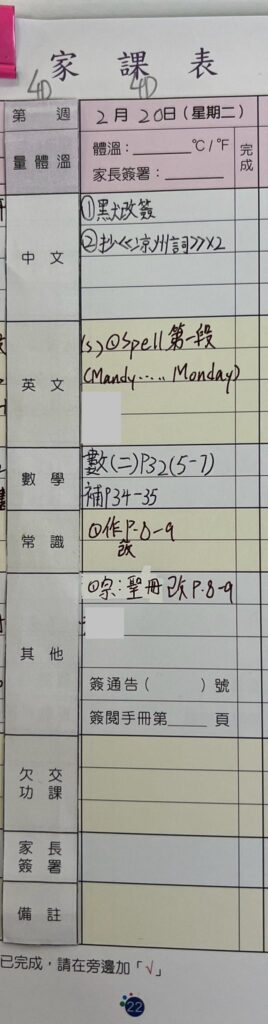 家課表
4D 4D
第 週 2月20日(星期二) 完成
量體溫 體溫:______℃/℉
家長簽署:______
中文 ①默改簽
②抄《涼州詞》x2
英文 (s)①Spell第一段
(Mandy..... Monday)
數學 數(二)P32(5-7)
補P34-35
常識 ①作P.8-9
改
其他 ①宗:聖冊改P.8-9
簽通告( )號
簽閱手冊第____頁
欠交功課
家長簽署
備註
已完成,請在旁邊加「√」
22